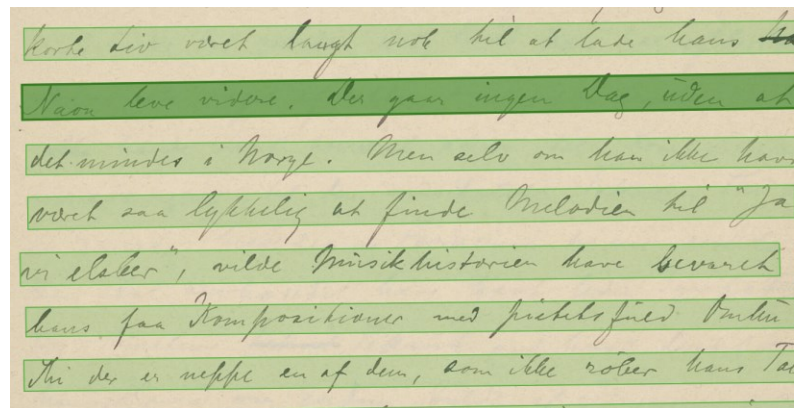 korte Liv været langt nok til at lade hans
Navn leve videre. Der gaar ingen Dag, uden at
det mindes i Norge. Men selv om han ikke havd
været saa lykkelig at finde Melodien til "Ja
vi elsker", vilde Musikhistorien have bevaret
hans faa Kompositioner med pietetsfuld
Thi der er neppe en af dem, som ikke røber hans Tal